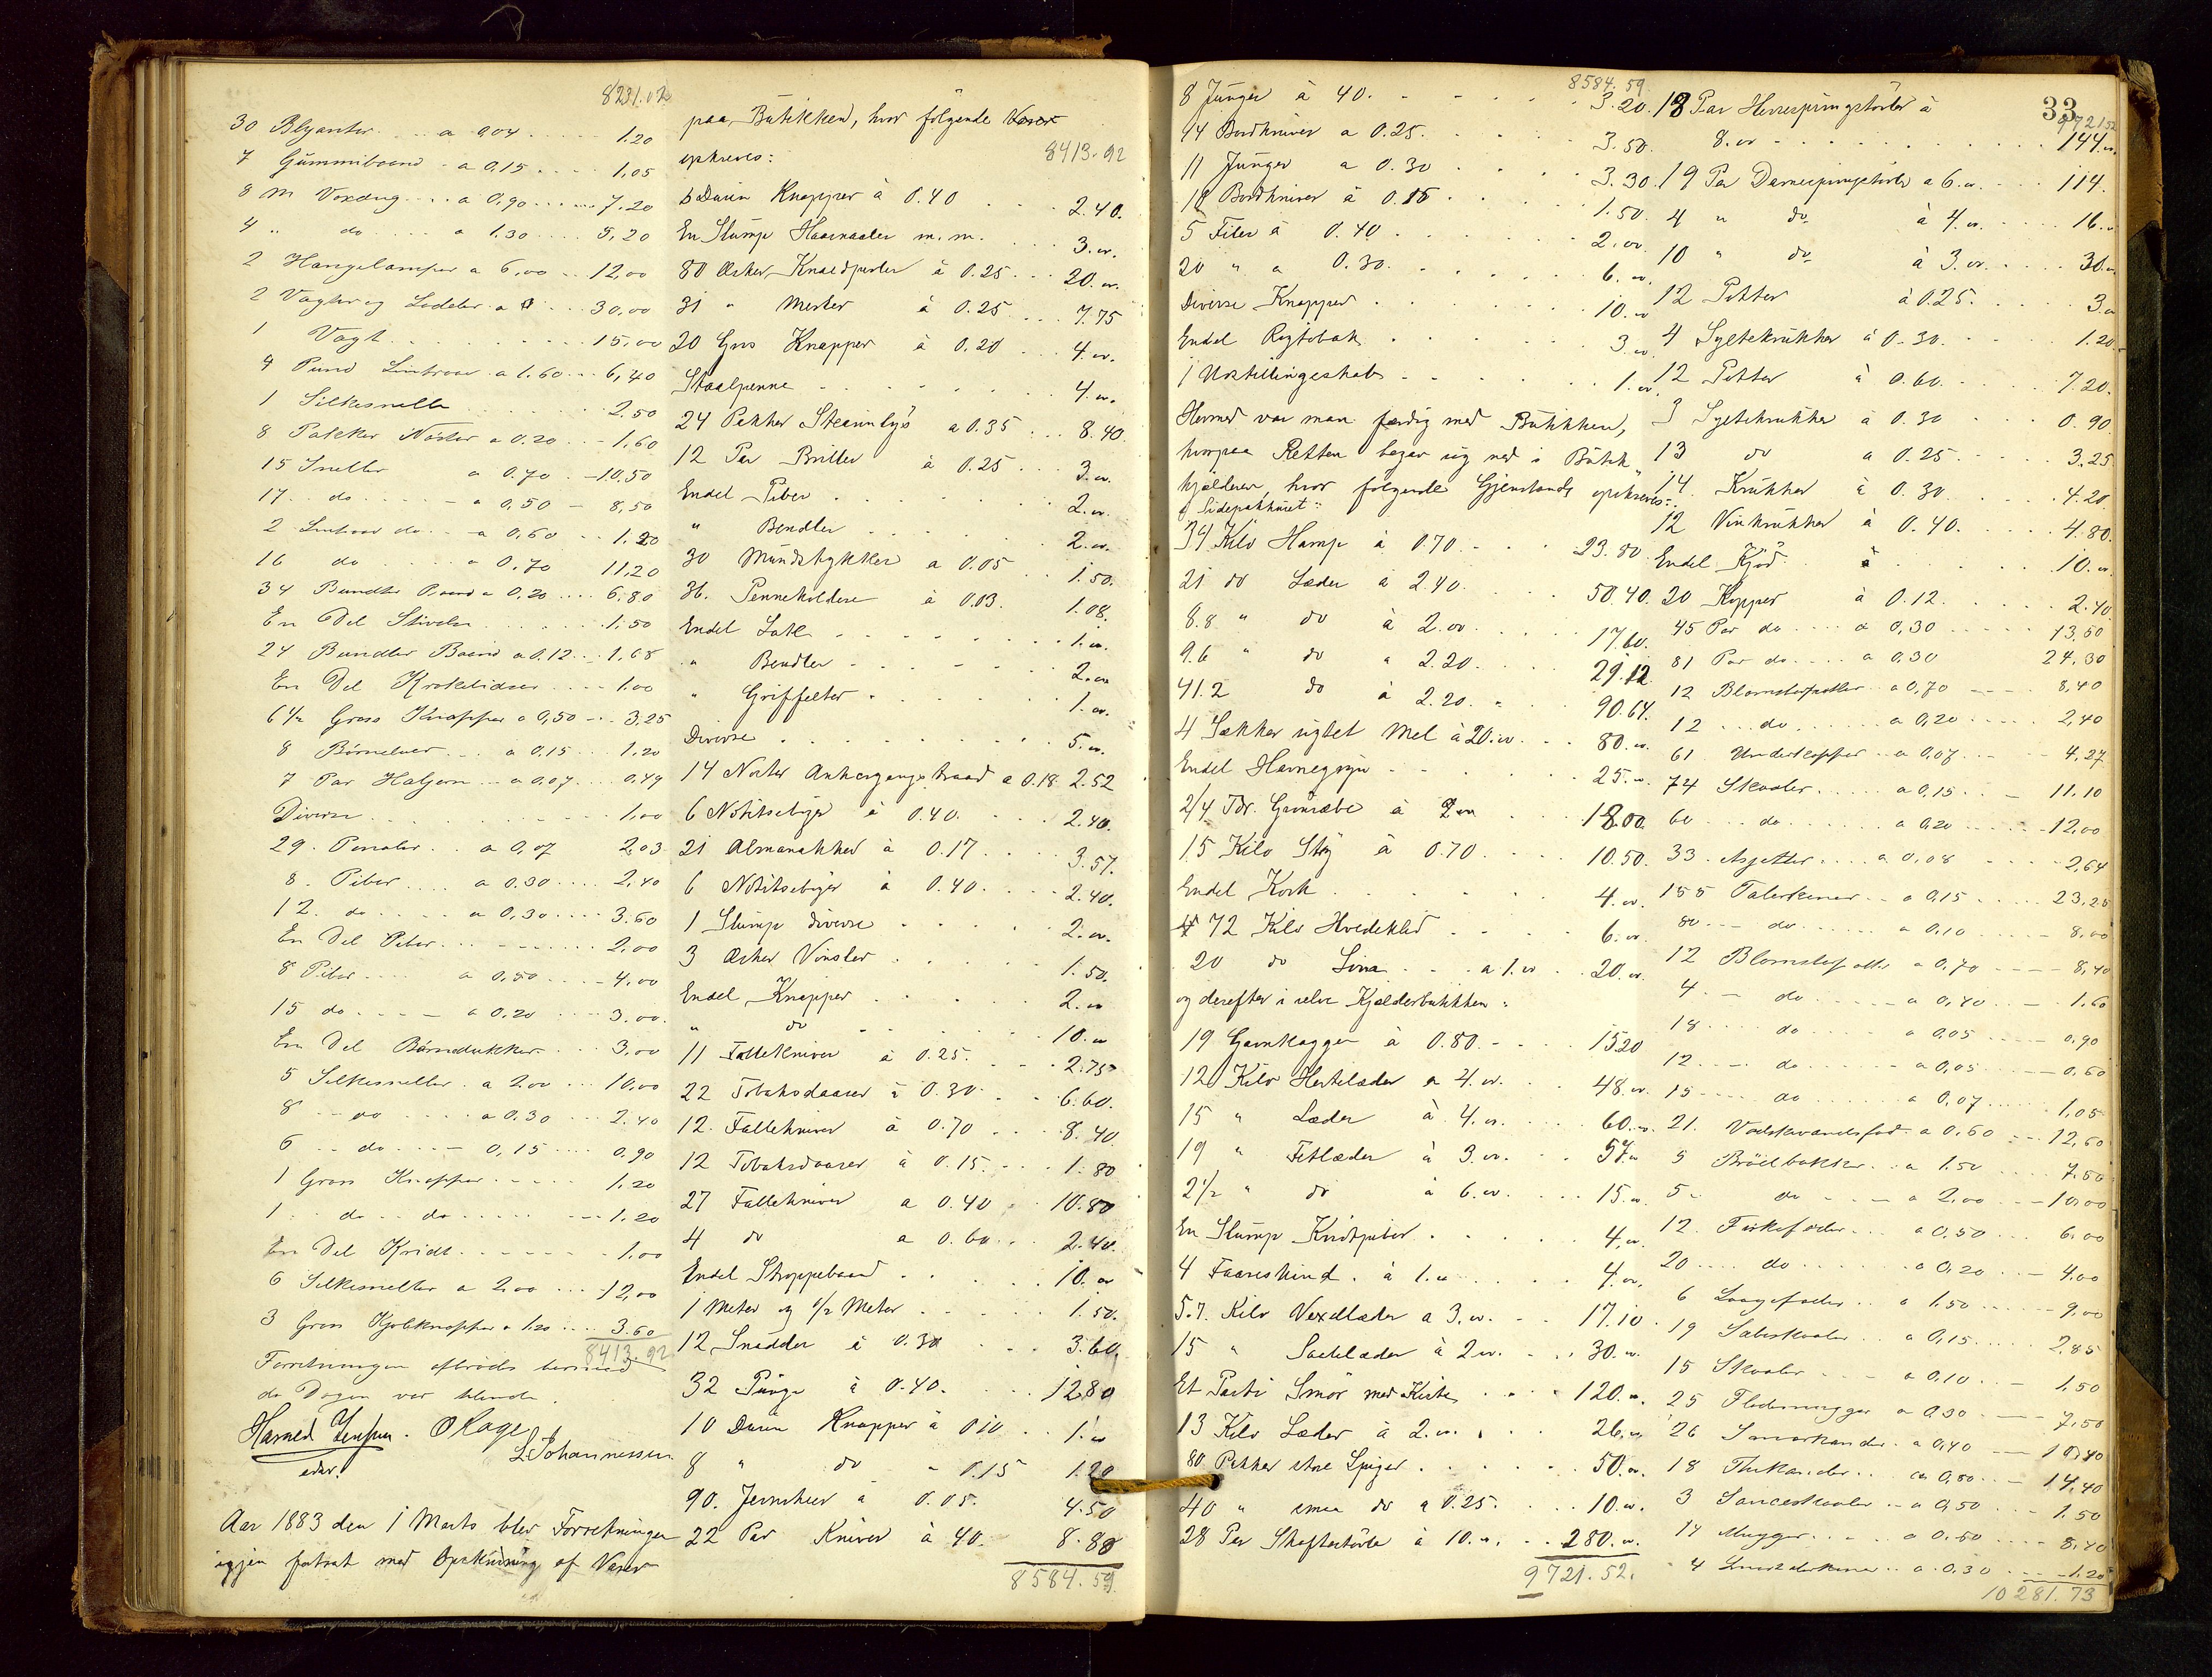 8231.02
30 Blyanter a 0,04 1.20
7 Gummibaand a 0,15 1,05
8 m Voxdug a 0,90 7.20
4 " do a 1.30 5,20
2 Hængelamper a 6,00 12,00
2 Vægter og Lodder a 30,00
1 Vægt 15,00
4 Pund Lintraad a 1.60 6,40
1 Silkesnelle 2.50
8 Pakker Nøster a 0.20 1.60
15 Sneller a 0.70 10,50
17 do a 0,50 8,50
2 Lintraad do a 0,60 1.20
16 do a 0,70 11,20
34 Bundter Baand a 0,20 6,80
En Del Stivelse 1,50
24 Bundter Baand a 0.12 1,68
En Del Krokelidser 1,00
6 1/2 Gross Knapper a 0,50 3,25
8 Børneluer a 0,15 1,20
7 Par Halgarn a 0,07 0,49
Diverse 1,00
29 Penaler a 0,07 2,03
8 Piber a 0.30 2,40
12 do a 0,30 3.60
En Del Piber 2,00
8 Piber a 0,50 4,00
15 do a 0,20 3,00
En Del Børnedukker 3,00
5 Silkesneller a 2,00 10,00
8 do a 0.30 2.40
6 do 0,15 0.90
1 Gross Knapper 1,20
1 do do 1.20
En Del Kridt 1,00
6 Silkesneller a 2,00 12,00
3 Gross Kjoleknapper a 1.20 3.60
8413.92
Forretningen afbrødes hermed
da Dagen var tilende.
Harald Jensen. O Kage
L Johannessen
edsv.
Aar 1883 den 1 Marts blev Forretningen
igjen fortsat med Opskrivning af Varer
paa Butikken, hvor følgende Varer
opskreves: 8413.92
6 Dusin Knapper à 0.40 2.40.
En Slump Haarnaaler m.m. 3.00.
80 Æsker Knaedperler à 0.25 20.00.
31 " Merler à 0.25 7.75
20 Gros Knapper à 0.20 4.00.
Staalpenne 4.00.
24 Pakker Stearinlys a 0.35 8.40.
12 Par Briller à 0.25 3.00.
Endel Piber 2.00.
" Bendler 2.00.
30 Mundstykker a 0.05 1.50.
36. Penneholdere à 0.03. 1.08.
Endel Lak 1.00.
" Bendler 2.00
" Griffelter 1.00.
Diverse 5.00.
14 Nøster Ankergangstraad a 0.18 2.52
6 Notitsebøger à 0.40. 2.40.
21 Almanakker à 0.17 3.57.
6 Notitsebøger à 0.40. 2.40.
1 Slump diverse 2.00.
3 Æsker Vinsler 1.50.
Endel Knapper 2.00
" do 10.00
11 Follekniver à 0.25. 2.75
22 Tobaksdaaser à 0.30 6.60.
12. Follekniver à 0.70 8.40.
12 Tobaksdaaser à 0.15. 1.80
27 Follekniver a 0.40 10.80
4 do a 0.60 2.40.
Endel Stroppebaand 10.00
1 Meter og 1/2 Meter 1.50.
12 Snadder à 0.30 3.60.
32 Punge à 0.40. 12.80
10 Dusin Knapper à 0.10 1.00
8 " do " 0.15 1.20
90. Jernskeer à 0.05. 4.50
22 Par Kniver à 40. 8.80
8584.59
8584.59
8 Punger à 40. 3.20.
14 Bordkniver a 0.25. 3.50.
11 Punger a 0.30 3.30.
10 Bordkniver à 0.15 1.50.
5 Filer à 0.40. 2.00.
20 " a 0.30. 6.00.
Diverse Knapper 10.00
Endel Røgtobak 3.00
1 Udstillingsskab 1.00
Hermed var man færdig med Butikken,
hvorpaa Retten begav sig ned i Butik
kjælderen, hvor følgende Gjenstande opskreves:
i Sidepakhuset:
34 Kilo Hamp à 0.70. 23.80
21 do Læder à 2.40. 50.40.
8.8 " do à 2.00 17.60.
9.6 " do " 2.20. 29.12
41.2 do à 2.20. 90.64.
4 Sækker sigtet Mel à 20.00 80.00.
Endel Havregryn 25.00
2/4 Tdr. Grønsæbe à 9.00 18.00.
15 Kilo Stg à 0.70 10.50.
Endel Kork 4.00.
72 Kilo Hvedeklid 6.00.
20 do Liva a 1.00 20.00.
og derefter i selve Kjælderbutikken:
19 Garnkagger à 0.80. 15.20
12 Kilo Hestelæder a 4.00. 48.00
15 " Læder à 4.00. 60.00.
19 " Fetlæder à 3.00. 57.00
2 1/2 " do à 6.00. 15.00
En Slump Kridtpiber 4.00
4 Faareskind à 1.00 4.00.
5.7. Kilo Vexellæder a 3.00. 17.10.
15 " Saalelæder à 2.00. 30.00.
Et Parti Smør med Kister 120.00.
13 Kilo Læder à 2.00. 26.00
80 Pakker store Spiger 50.00.
40 " smaa do a 0.25. 10.00.
28 Par Skaftestøvler à 10.00. 280.00.
9721.52.
33
9721.52
18 Par Herrespringstøvler à
8.00 144.00.
19 Par Damespringstøvler a 6.00. 114.
4 " do. à 4.00. 16.00
10 " do. à 3.00. 30.00
12 Potter à 0.25. 3.00
4 Syltekrukker à 0.30. 1.20
12 Potter à 0.60. 7.20.
3 Syltekrukker à 0.30 0.90
13 do a 0.25. 3.25.
14. Krukker à 0.30. 4.20
12 Vinkrukker à 0.40. 4.80.
Endel Kjød à 10.00.
20 Kopper à 0.12. 2.40
45 Par do a 0,30 13,50
81 Par do. a 0,30 24,30
12 Blomsterpotter a 0,70 8,40
12 do. a 0,20 2,40
61 Underkopper a 0,07 4,27
74 Skaaler a 0,15 11.10
60 do a 0,20 12,00
33 Asjetter a 0,08 2,64
155 Talerkener a 0,15 23,25
80 do a 0,10 8,00
12 Blomsterpotter a 0,70 8,40
4 do a 0,40 1.60
18 do a 0,05 0,90
12 do a 0,05 0,60
15 do a 0,07 1,05
21. Vadskevandsfad a 0,60 12,60
5 Brødbakker a 1.50 7.50
5 do a 2,00 10,00
12. Fiskefader a 0,50 6,00
20 do a 0,20 4,00
6 Laagefader a 1.50 9,00
19 Salatskaaler a 0,15 2,85
15 Skaaler a 0,10 1,50
25 Flødemugger a 0,30 7,50
26 Smørkander a 0,40 10,40
18 Thekander a 0,80 14,40
3 Sauceskaaler a 0,50 1.50
14 Mugger a 0,60 8,40
4 a 0,30 1.20
10281.73